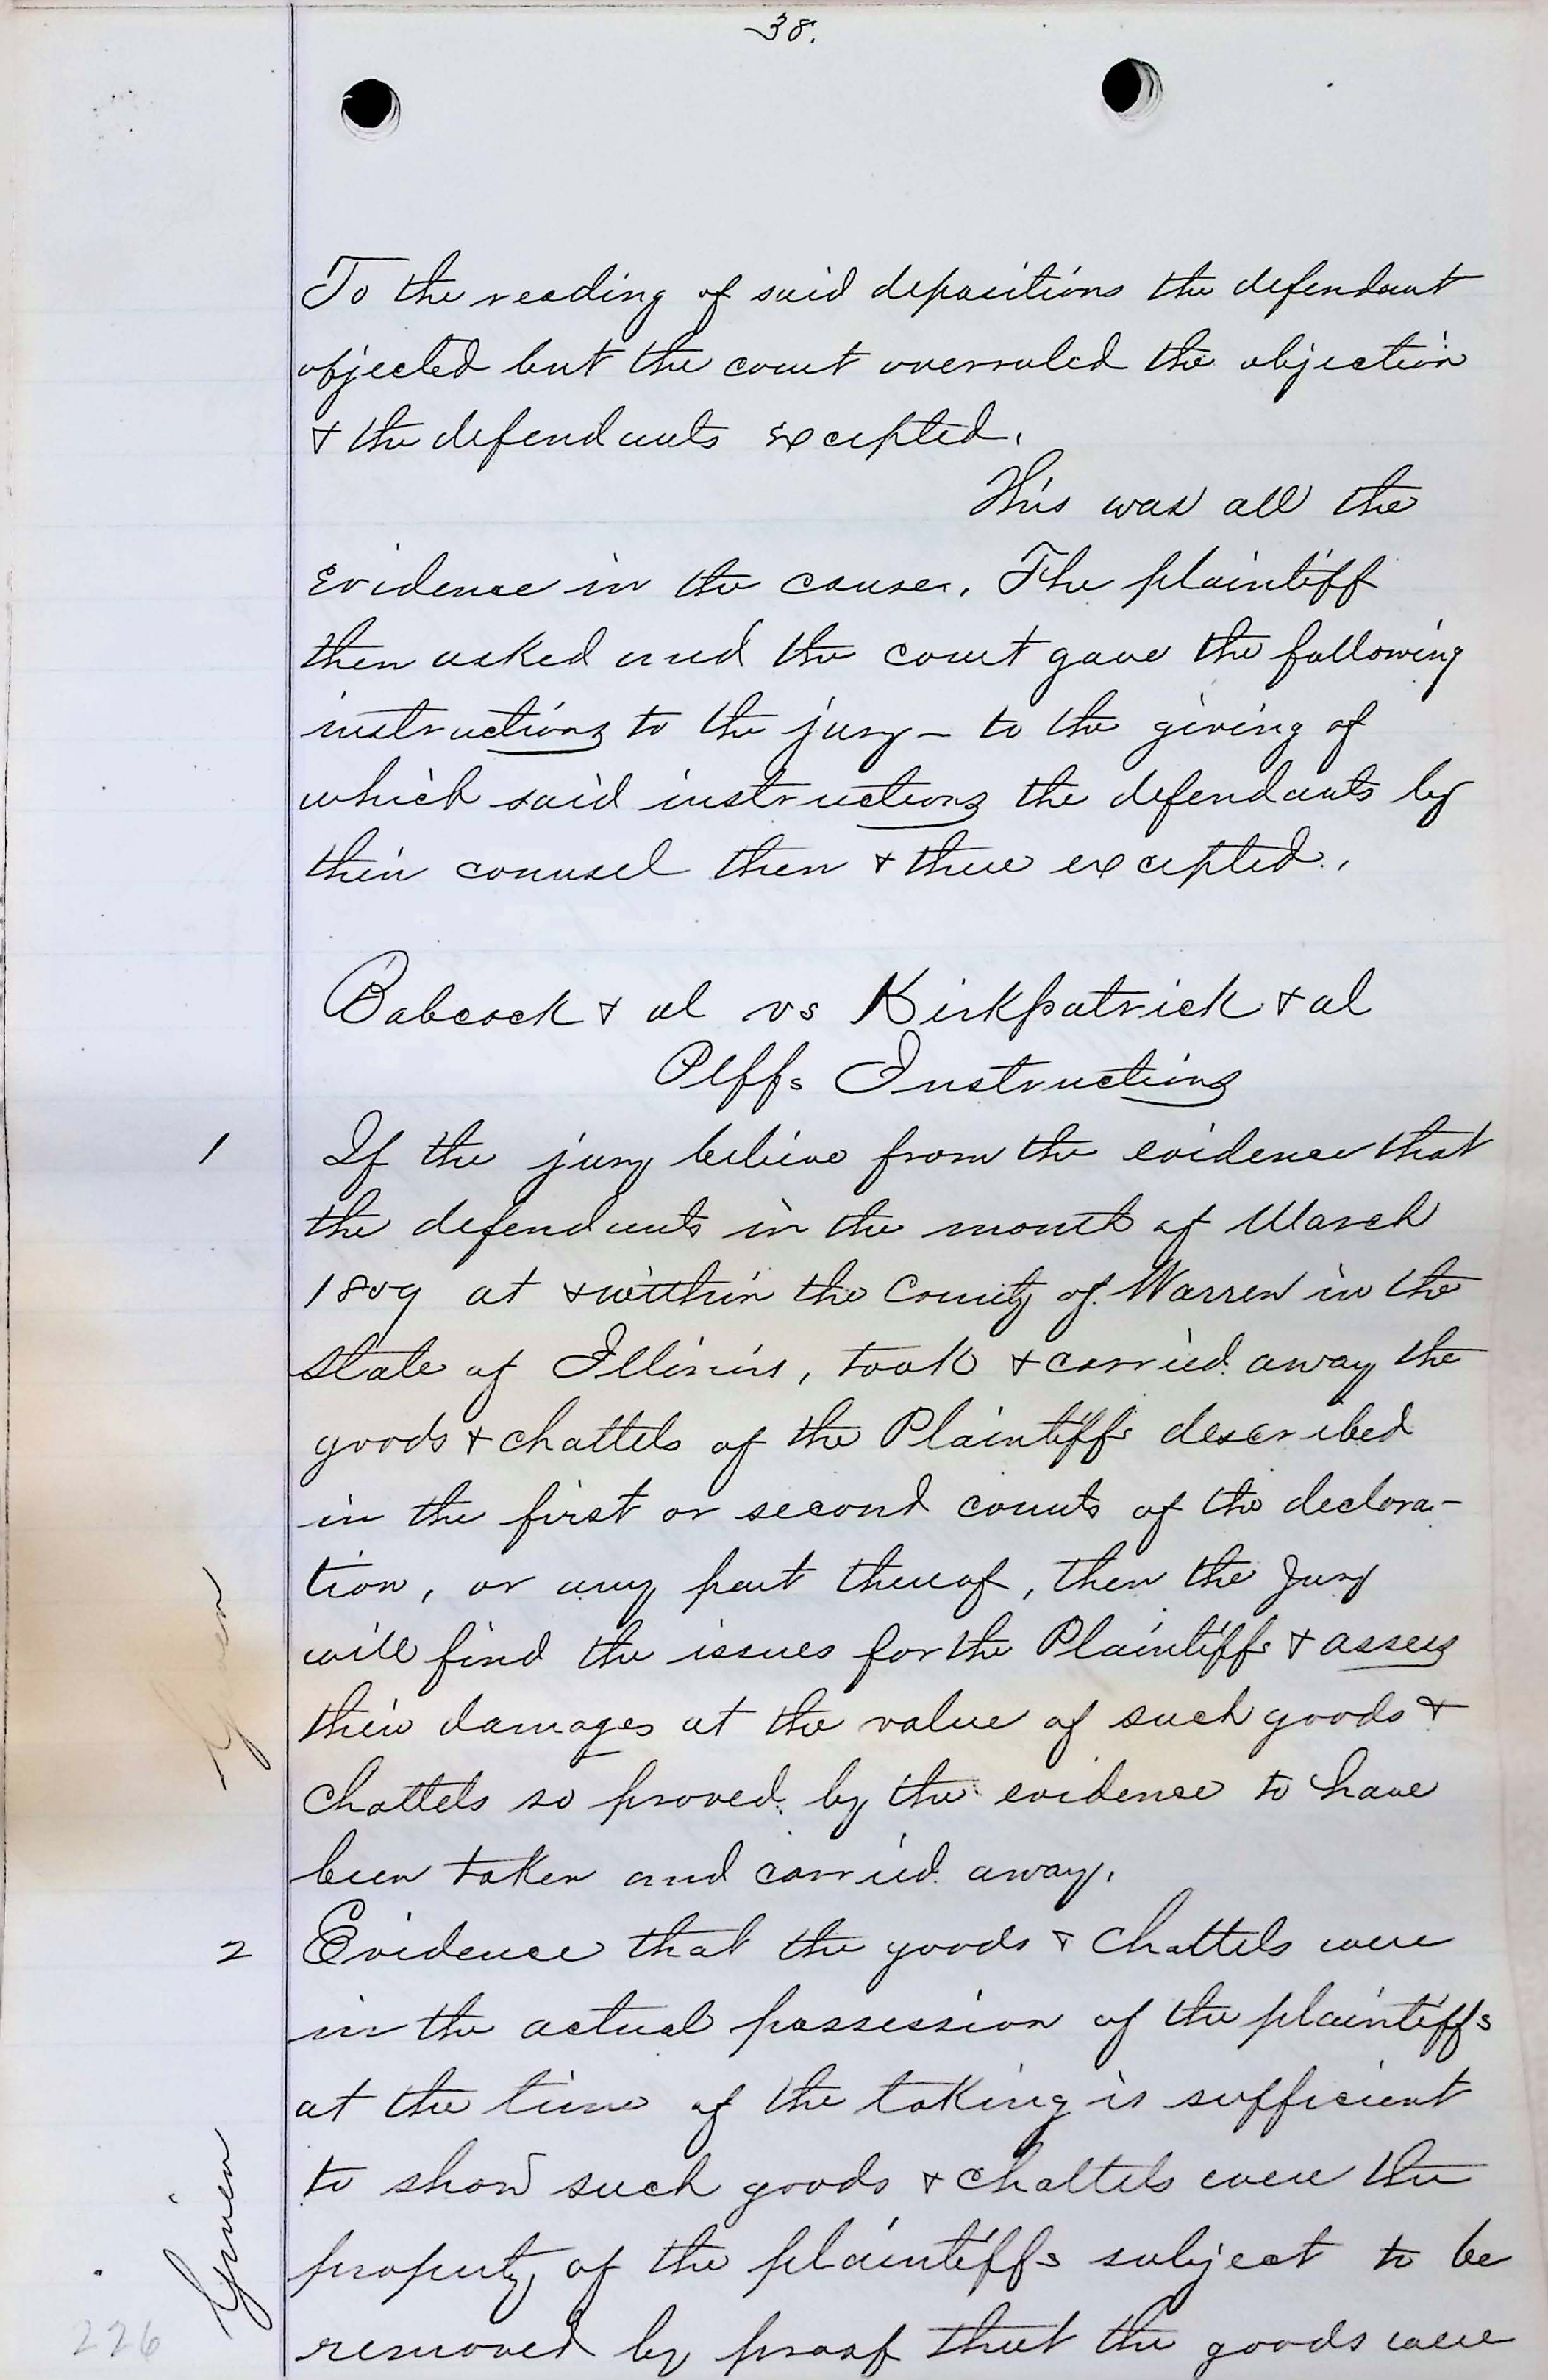 38.
To the reading of said depositions the defendant
objected but the court overruled the objection
& the defendants excepted.
This was all the
evidence in the cause. The plaintiff
then asked and the court gave the following
instructions to the jury – to the giving of
which said instructions the defendants by
their counsel then & there excepted.
Babcock & al vs Kirkpatrick & al
Plffs Instructions
1 If the jury believe from the evidence that
the defendants in the month of March
1859 at & within the County of Warren in the
State of Illinois, took & carried away the
goods & chattels of the Plaintiffs described
in the first or second counts of the declara-
tion, or any part thereof, then the Jury
will find the issues for the Plaintiffs & assess
their damages at the value of such goods &
chattels so proved by the evidence to have
been taken and carried away.
Given
2 Evidence that the goods & chattels were
in the actual possession of the plaintiffs
at the time of the taking is sufficient
to show such goods & chattels were the
property of the plaintiffs subject to be
removed by proof that the goods were
Given
226